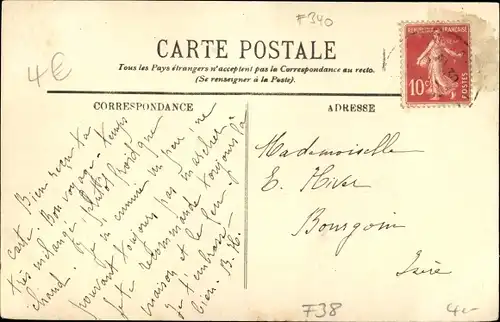 #340
4€
CARTE POSTALE
Tous les Pays étrangers n'acceptent pas la Correspondance au recto.
(Se renseigner à la Poste).
RÉPUBLIQUE FRANÇAISE
10c
POSTES
CORRESPONDANCE
Bien reçu ta
carte. Bon voyage. Temps
très mélangé, plutôt froid que
chaud. Je m'ennuie un peu ne
pouvant toujours pas marcher
Je te recommande toujours la
maison et le feu.
Je t'embrasse
bien. B. H.
ADRESSE
Mademoiselle
E. Hiver
Bourgoin
Isère
F38
4.-